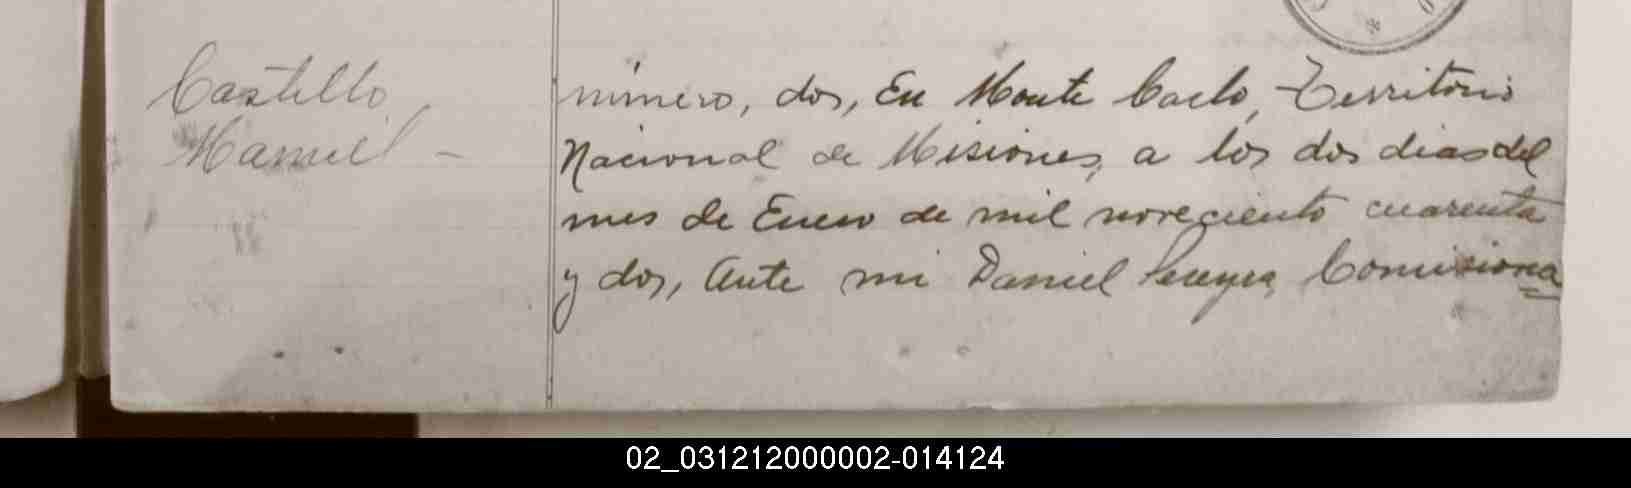 Castillo,
Manuel -
número, dos, En Monte Carlo, Territorio
Nacional de Misiones, a los dos dias del
mes de Enero de mil noveciento cuarenta
y dos, Ante mi Daniel Pereyra, Comisiona
02_031212000002-014124